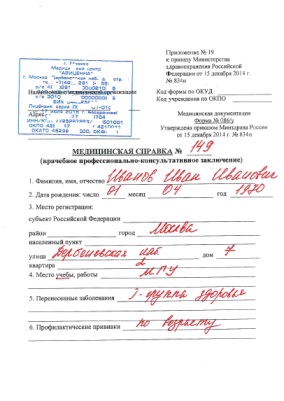 Приложение № 19
к приказу Министерства
здравоохранения Российской
Федерации от 15 декабря 2014 г.
№ 834н
Код формы по ОКУД
Код учреждения по ОКПО
Медицинская документация
Форма № 086/у
Утверждена приказом Минздрава России
от 15 декабря 2014 г. № 834н
МЕДИЦИНСКАЯ СПРАВКА № 149
(врачебное профессионально-консультативное заключение)
1. Фамилия, имя, отчество Иванов Иван Иванович
2. Дата рождения: число 01 месяц 04 год 1970
3. Место регистрации:
субъект Российской Федерации
район город Москва
населенный пункт
улица Дербеневская наб. дом 7
квартира 2
4. Место учебы, работы МПУ
5. Перенесенные заболевания I-группа здоровья
6. Профилактические прививки по возрасту